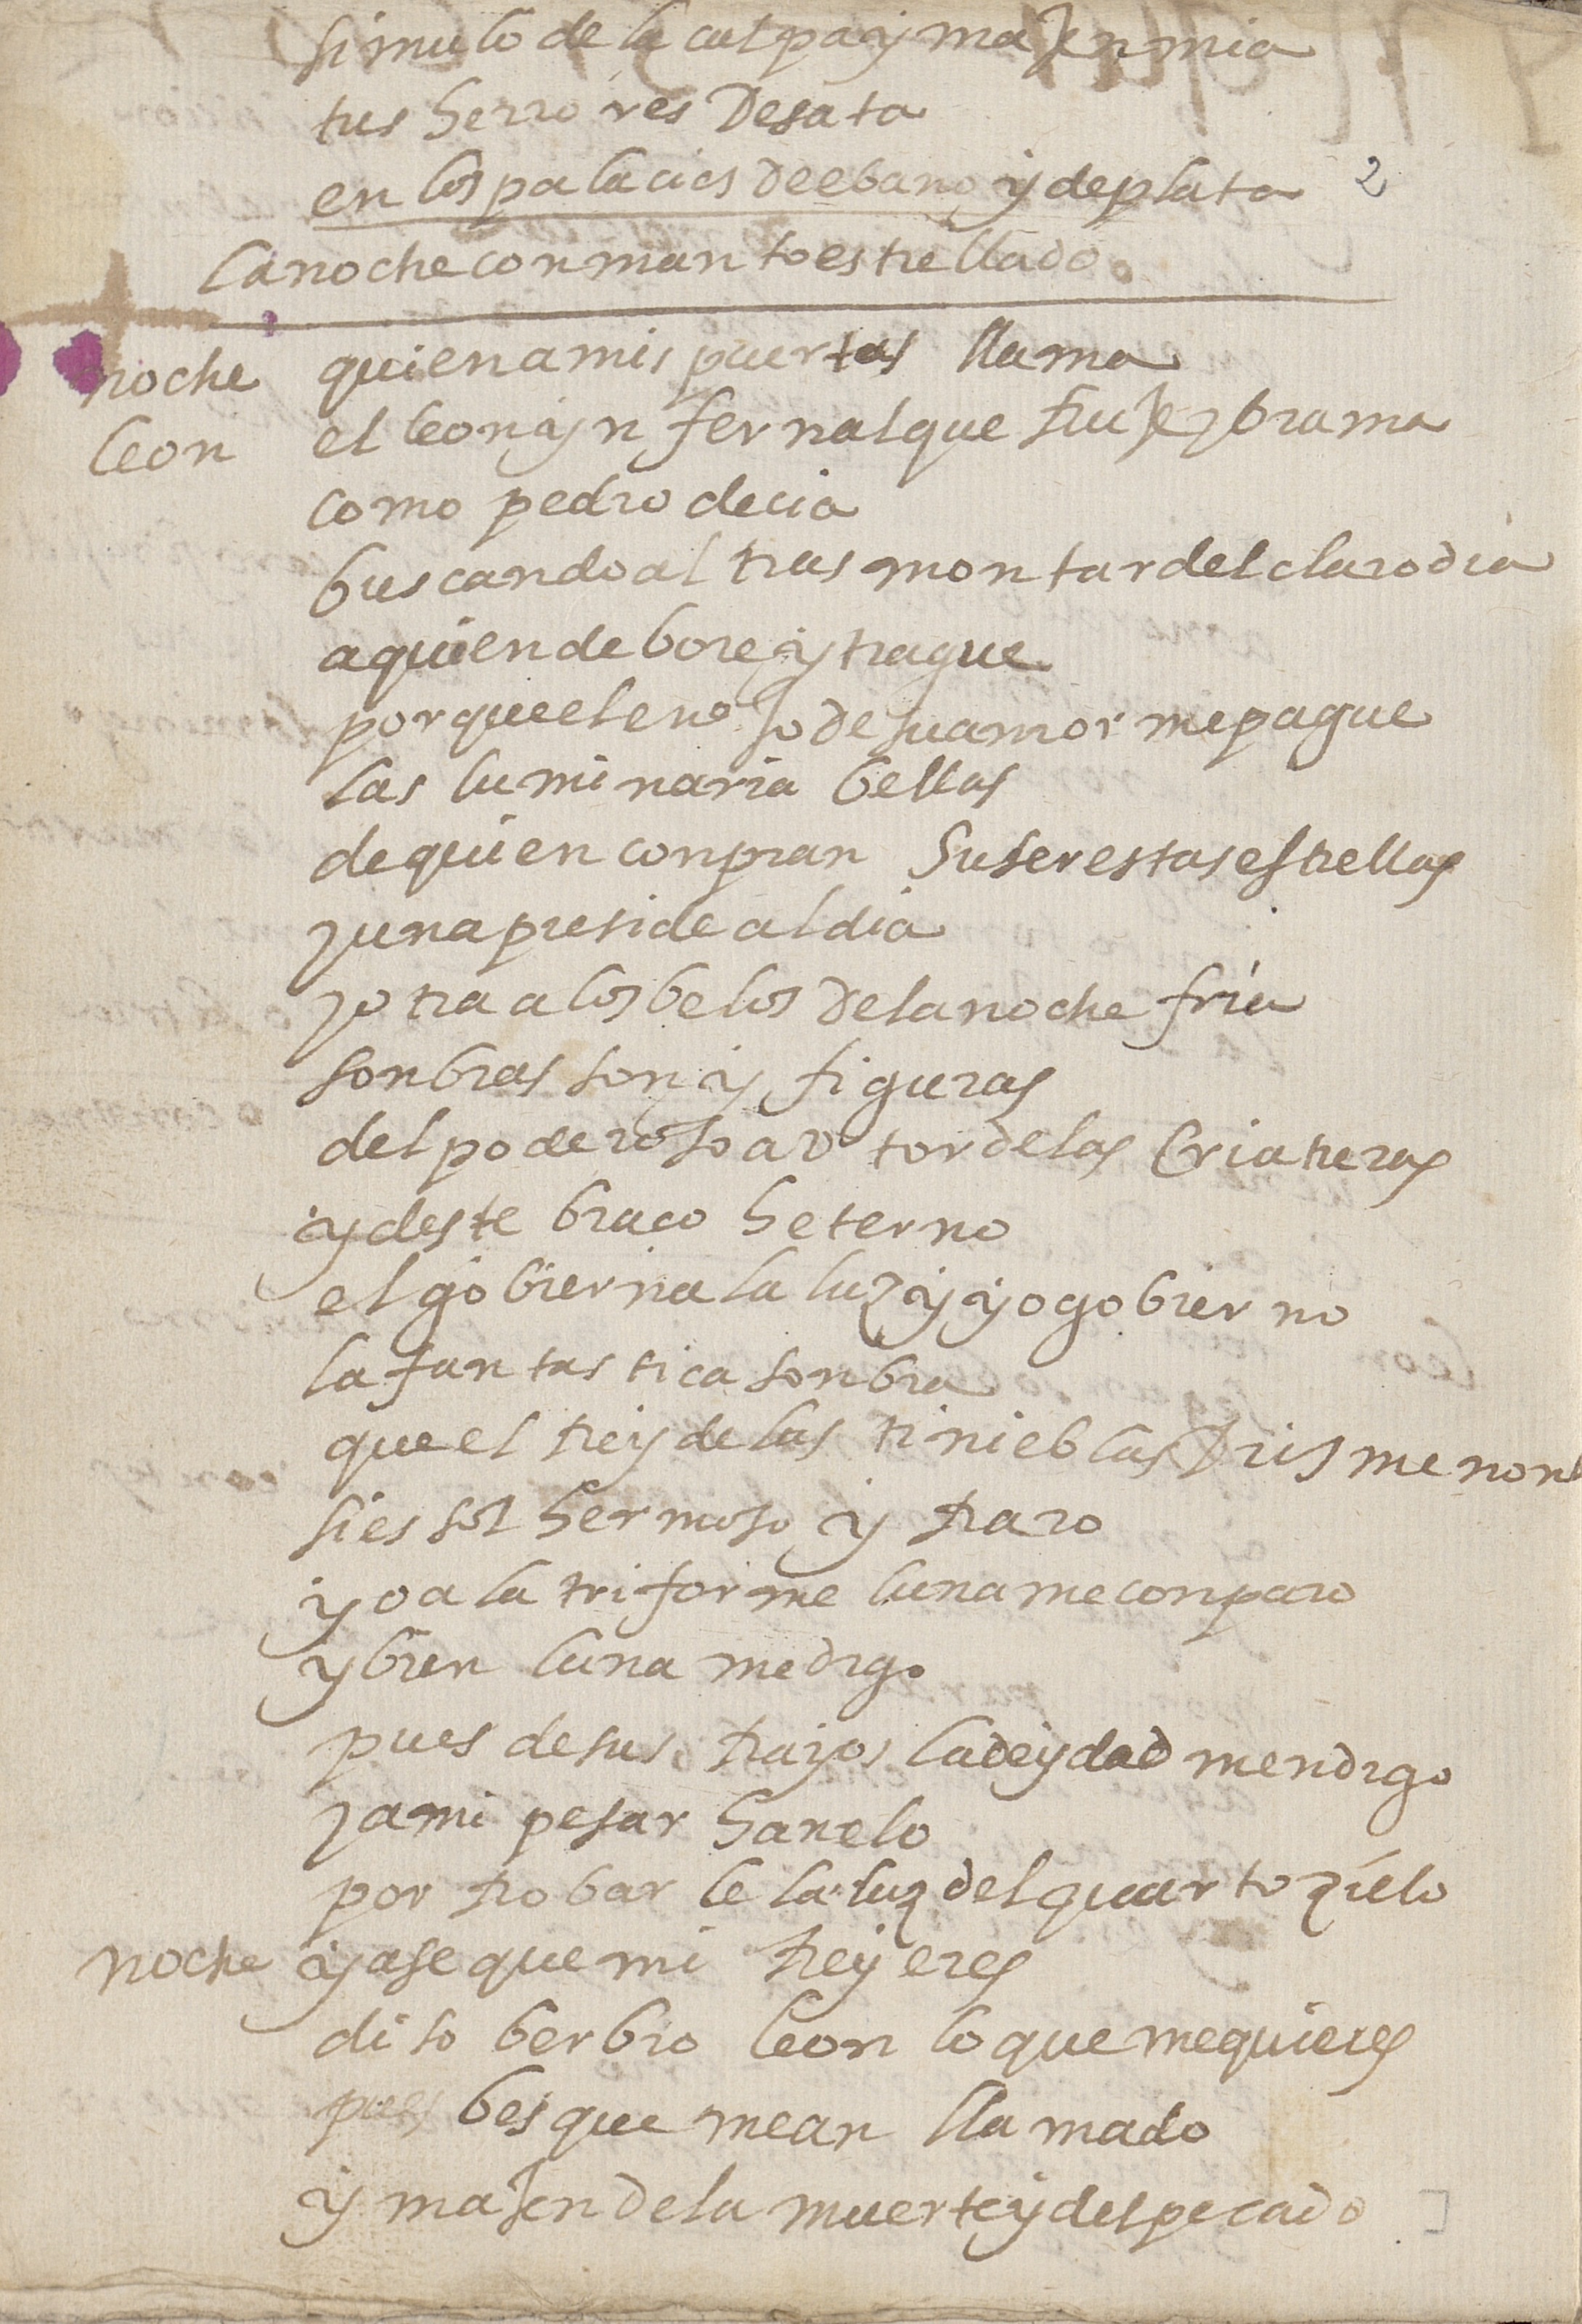 simulo de la culpa y majen mia
tus herrores Desata
en los palacios De ebano y de plata 2
La noche con manto estrellado.
noche quien a mis puertas llama
leon el leon ynfernal que ruje y brama
como pedro decia
buscando al trasmontar del claro dia
a quien debore y trague
porque el enojo de su amor me pague
las luminaria bellas
de quien conpran su ser estas estrellas
y una preside al dia
y otra a los belos De la noche fria
sonbras son y figuras
del poderoso avtor de las Criaturas
y deste braço heterno
el gobierna la luz y yo gobierno
la fantastica sonbra
que el rey de las tinieblas me nonb
si es sol hermoso y raro
yo a la triforme luna me conparo
y bien luna me digo
pues de sus rayos la deydad mendigo
y a mi pesar hanelo
por robarle la luz del quarto zielo
noche ya se que mi rey eres
di soberbio leon lo que me quieres
pues bes que me an llamado
y majen de la muerte y del pecado